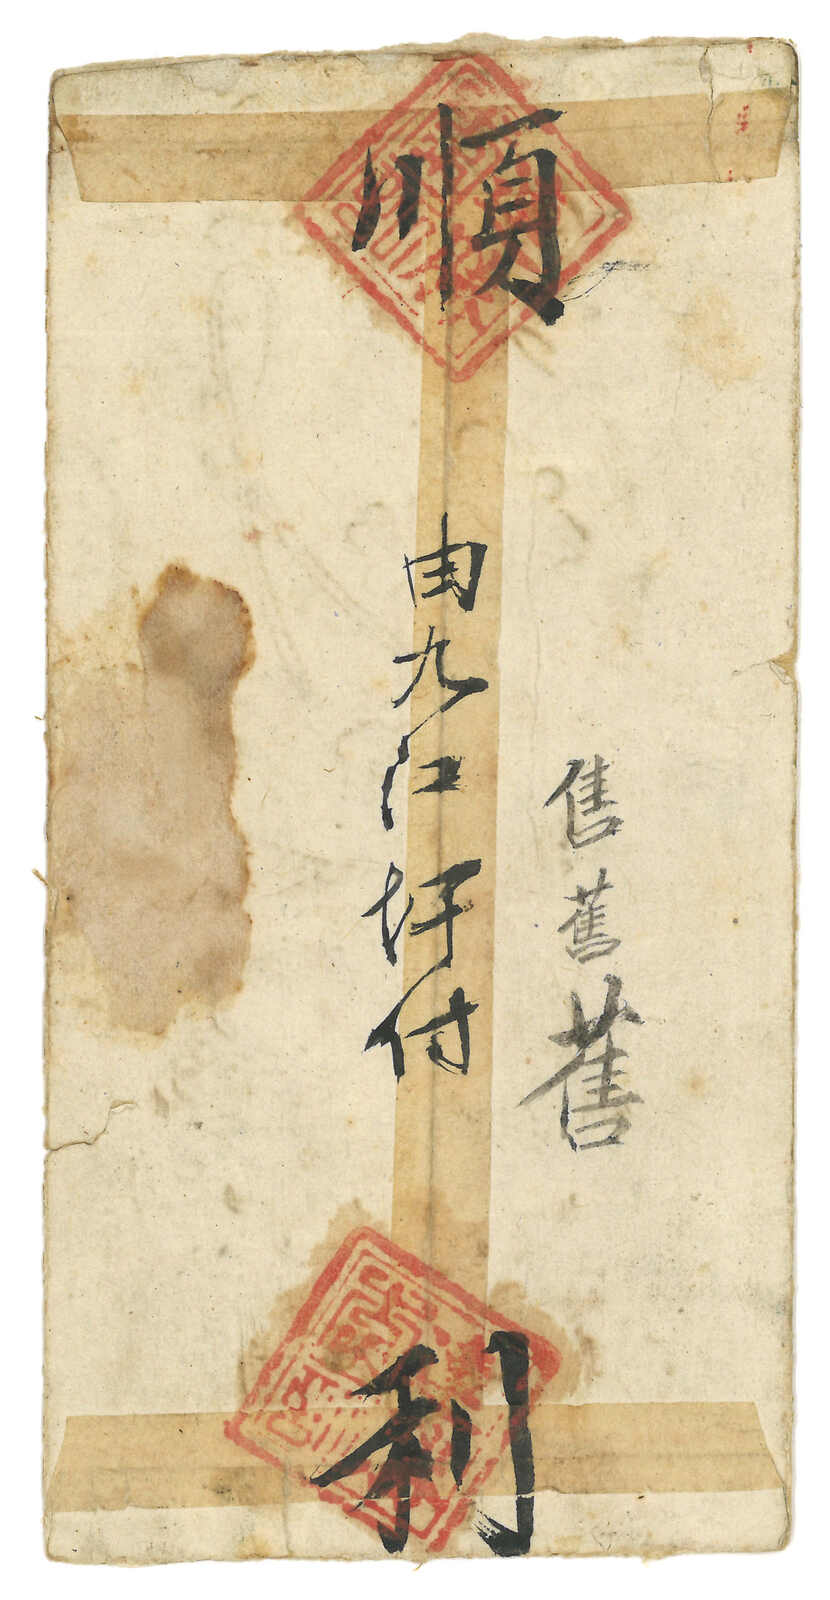 順
由九江圩付
售舊舊
利